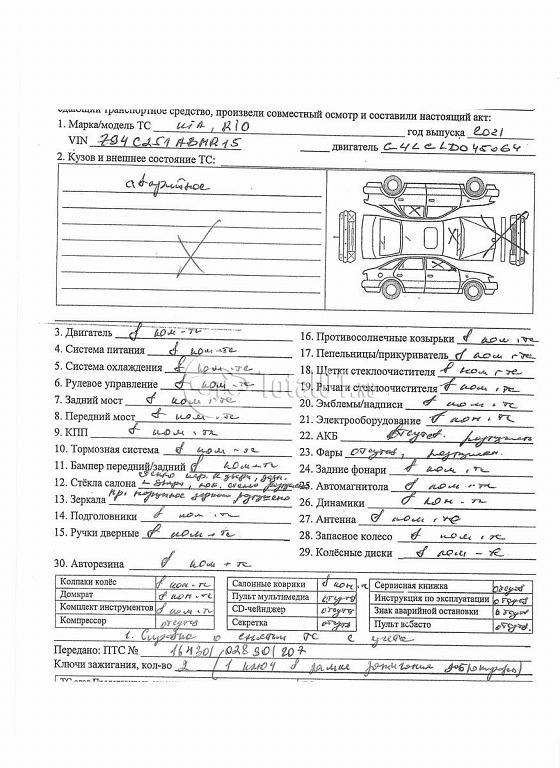 едающий транспортное средство, произвели совместный осмотр и составили настоящий акт:
1. Марка/модель ТС КИА, RIO год выпуска 2021
VIN Z94C251ABMR15 двигатель G4LCLD045064
2. Кузов и внешнее состояние ТС:
аварийное
3. Двигатель в ком-те
4. Система питания в ком-те
5. Система охлаждения в ком-те
6. Рулевое управление в ком-те
7. Задний мост в ком-те
8. Передний мост в ком-те
9. КПП в ком-те
10. Тормозная система в ком-те
11. Бампер передний/задний в ком-те
12. Стёкла салона
13. Зеркала Пр. наружное зеркало разрушено
14. Подголовники в ком-те
15. Ручки дверные в ком-те
16. Противосолнечные козырьки в ком-те
17. Пепельницы/прикуриватель в ком-те
18. Щетки стеклоочистителя в ком-те
19. Рычаги стеклоочистителя в ком-те
20. Эмблемы/надписи в ком-те
21. Электрооборудование в ком-те
22. АКБ отсутв.
23. Фары отсутв,
24. Задние фонари в ком-те
25. Автомагнитола в ком-те
26. Динамики в ком-те
27. Антенна в ком-те
28. Запасное колесо в ком-те
29. Колёсные диски в ком-те
30. Авторезина в ком-те
Колпаки колёс в ком-те
Домкрат в ком-те
Комплект инструментов в ком-те
Компрессор отсутв
Салонные коврики в ком-те
Пульт мультимедиа отсутв
CD-чейнджер отсутв
Секретка отсутв
Сервисная книжка отсутв
Инструкция по эксплуатации отсутв
Знак аварийной остановки отсутв
Пульт вебасто отсутв.
1. Справка о снятии ТС с учета
Передано: ПТС № 164301028901207
Ключи зажигания, кол-во 2 (1 ключ в замке зажигания